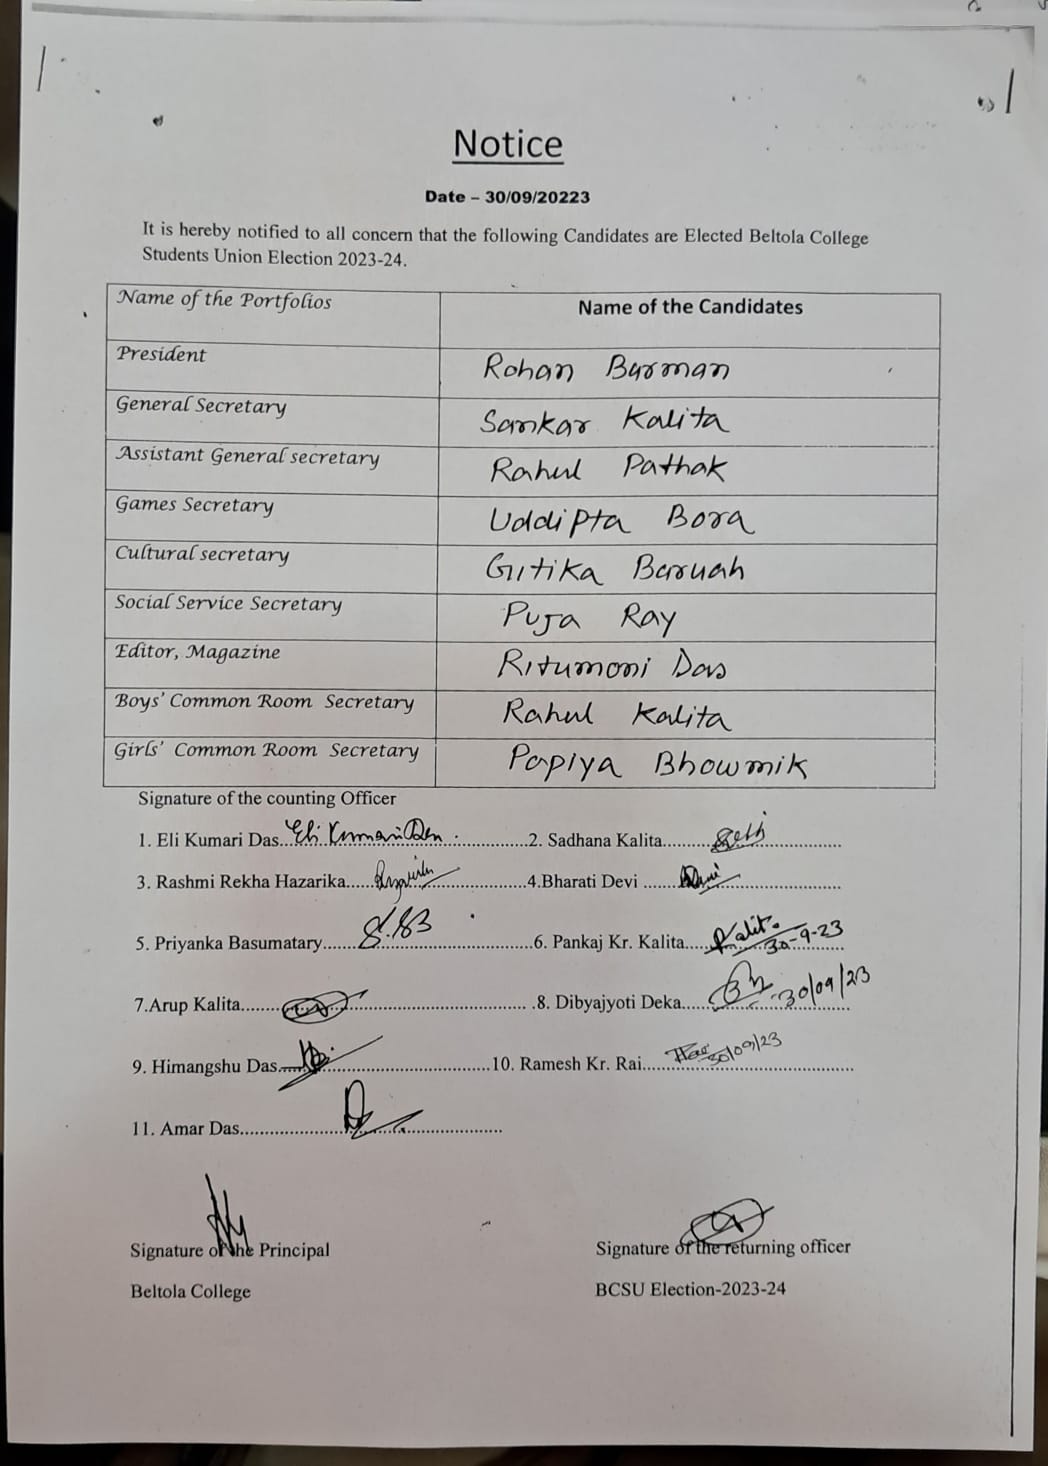 Notice
Date – 30/09/20223
It is hereby notified to all concern that the following Candidates are Elected Beltola College
Students Union Election 2023-24.
Name of the Portfolios Name of the Candidates
President Rohan Burman
General Secretary Sankar Kalita
Assistant General secretary Rahul Pathak
Games Secretary Uddipta Bora
Cultural secretary Gitika Baruah
Social Service Secretary Puja Ray
Editor, Magazine Ritumoni Das
Boys' Common Room Secretary Rahul Kalita
Girls' Common Room Secretary Papiya Bhowmik
Signature of the counting Officer
1. Eli Kumari Das...Eli Kumari Das...2. Sadhana Kalita...
3. Rashmi Rekha Hazarika...4.Bharati Devi ...
5. Priyanka Basumatary...6. Pankaj Kr. Kalita...Kalita 30-9-23
7.Arup Kalita... .8. Dibyajyoti Deka...30/09/23
9. Himangshu Das...10. Ramesh Kr. Rai...30/09/23
11. Amar Das...
Signature of the Principal Signature of the returning officer
Beltola College BCSU Election-2023-24